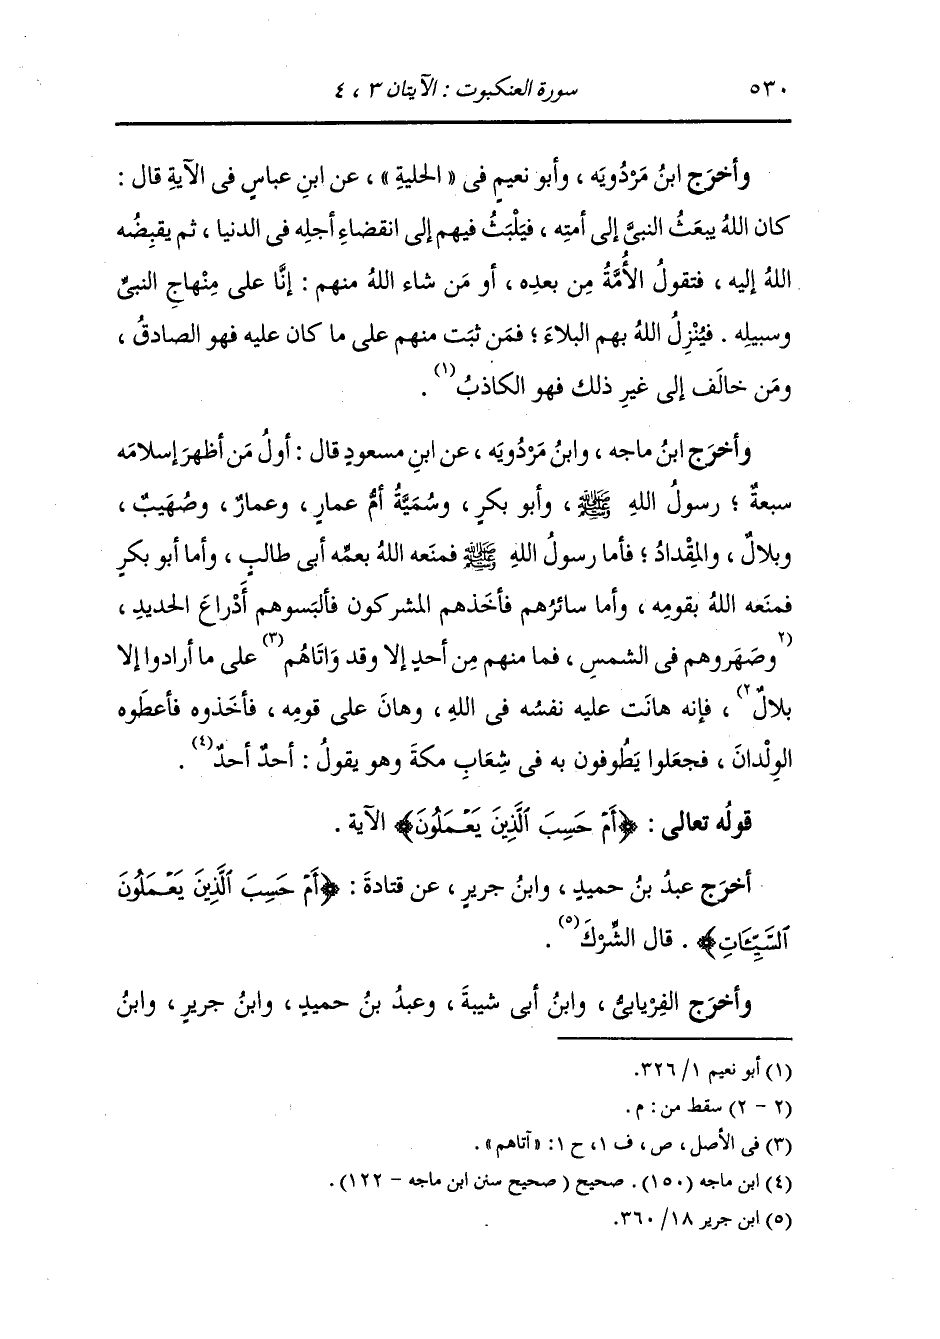 ٥٣٠ سورة العنكبوت : الآيتان ٣ ، ٤
وأخرَج ابنُ مَرْدُويَه ، وأبو نعيمٍ فى « الحليةِ » ، عن ابنِ عباسٍ فى الآيةِ قال :
كان اللهُ يبعَثُ النبىَّ إلى أمتِه ، فيَلْبَثُ فيهم إلى انقضاءِ أجلِه فى الدنيا ، ثم يقبِضُه
اللهُ إليه ، فتقولُ الأُمَّةُ مِن بعدِه ، أو مَن شاء اللهُ منهم : إنَّا على مِنْهاجِ النبىِّ
وسبيلِه . فيُنْزِلُ اللهُ بهم البلاءَ ؛ فمَن ثبَت منهم على ما كان عليه فهو الصادقُ ،
ومَن خالَف إلى غيرِ ذلك فهو الكاذبُ(١) .
وأخرَج ابنُ ماجه ، وابنُ مَرْدُويَه ، عن ابنِ مسعودٍ قال : أولُ مَن أظهرَ إسلامَه
سبعةٌ ؛ رسولُ اللهِ ﷺ ، وأبو بكرٍ ، وسُمَيَّةُ أمُّ عمارٍ ، وعمارٌ ، وصُهَيبٌ ،
وبلالٌ ، والمِقْدادُ ؛ فأما رسولُ اللهِ ﷺ فمنَعه اللهُ بعمِّه أبى طالبٍ ، وأما أبو بكرٍ
فمنَعه اللهُ بقومِه ، وأما سائرُهم فأخَذهم المشركون فألبَسوهم أَدْراعَ الحديدِ ،
(٢وصَهَروهم فى الشمسِ ، فما منهم مِن أحدٍ إلا وقد وَاتَاهُم(٣) على ما أرادوا إلا
بلالٌ٢) ، فإنه هانَت عليه نفسُه فى اللهِ ، وهانَ على قومِه ، فأخَذوه فأعطَوه
الوِلْدانَ ، فجعَلوا يَطُوفون به فى شِعَابِ مكةَ وهو يقولُ : أحدٌ أحدٌ(٤) .
قولُه تعالى : ﴿أَمۡ حَسِبَ ٱلَّذِينَ يَعۡمَلُونَ﴾ الآية .
أخرَج عبدُ بنُ حميدٍ ، وابنُ جريرٍ ، عن قتادةَ : ﴿أَمۡ حَسِبَ ٱلَّذِينَ يَعۡمَلُونَ
ٱلسَّيِّـَٔاتِ﴾ . قال الشِّرْكَ(٥) .
وأخرَج الفِرْيابىُّ ، وابنُ أبى شيبةَ ، وعبدُ بنُ حميدٍ ، وابنُ جريرٍ ، وابنُ
(١) أبو نعيم ١/ ٣٢٦.
(٢ - ٢) سقط من : م .
(٣) فى الأصل ، ص ، ف ١، ح ١: «آتاهم» .
(٤) ابن ماجه (١٥٠) . صحيح ( صحيح سنن ابن ماجه - ١٢٢) .
(٥) ابن جرير ١٨/ ٣٦٠.